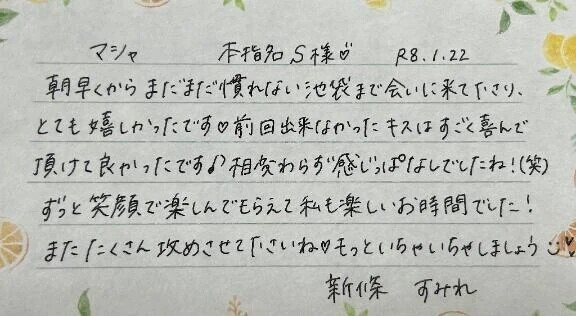 マシャ 本指名 S様♡ R8.1.22
朝早くからまだまだ慣れない池袋まで会いに来て下さり、
とても嬉しかったです♡前回出来なかったキスはすごく喜んで
頂けて良かったです♪相変わらず感じっぱなしでしたね！(笑)
ずっと笑顔で楽しんでもらえて私も楽しいお時間でした！
またたくさん攻めさせて下さいね♥もっといちゃいちゃしましょう
新條 すみれ